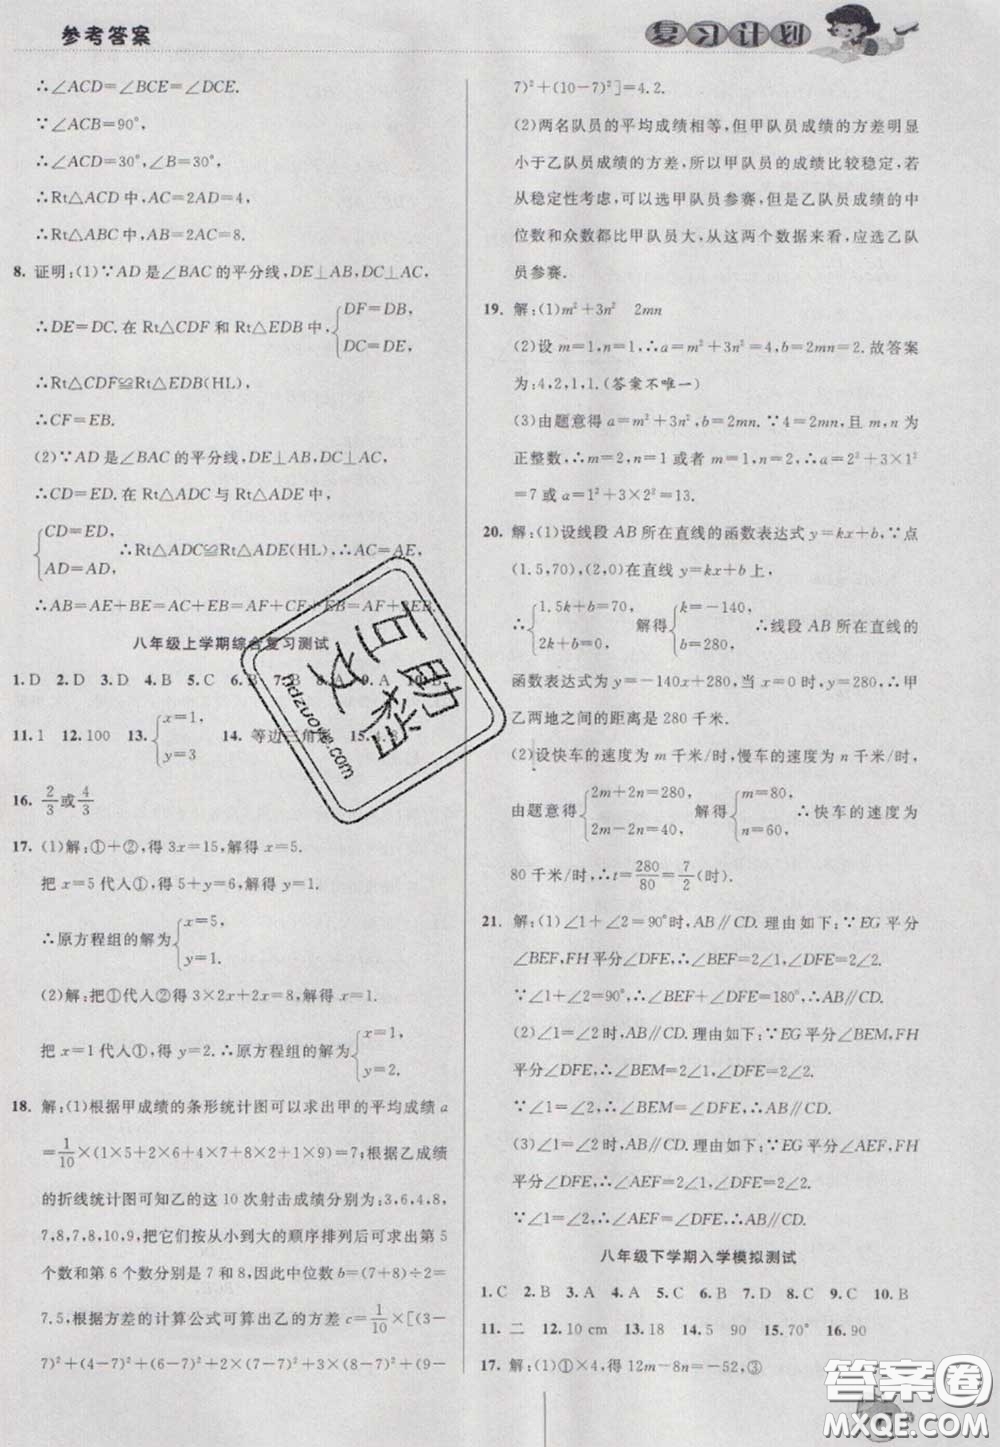 参考答案
复习计划
∴∠ACD=∠BCE=∠DCE.
∵∠ACB=90°,
∴∠ACD=30°,∠B=30°.
∴Rt△ACD中,AC=2AD=4,
∴Rt△ABC中,AB=2AC=8.
8. 证明:(1)∵AD是∠BAC的平分线,DE⊥AB,DC⊥AC,
∴DE=DC.在Rt△CDF和Rt△EDB中,{DF=DB,
DC=DE,
∴Rt△CDF≌Rt△EDB(HL),
∴CF=EB.
(2)∵AD是∠BAC的平分线,DE⊥AB,DC⊥AC,
∴CD=ED.在Rt△ADC与Rt△ADE中,
{CD=ED,
AD=AD, ∴Rt△ADC≌Rt△ADE(HL),∴AC=AE,
∴AB=AE+BE=AC+EB=AF+CF+EB=AF+2EB.
八年级上学期综合复习测试
1.D 2.D 3.D 4.B 5.C 6.B 7.B 8.A 9.A 10.B
11.1 12.100 13.{x=1,
y=3 14.等边三角形 15.
16. 2/3或4/3
17. (1)解:①+②,得3x=15,解得x=5.
把x=5代入①,得5+y=6,解得y=1.
∴原方程组的解为{x=5,
y=1.
(2)解:把①代入②得3×2x+2x=8,解得x=1.
把x=1代入①,得y=2.∴原方程组的解为{x=1,
y=2.
18. 解:(1)根据甲成绩的条形统计图可以求出甲的平均成绩a
=1/10×(1×5+2×6+4×7+2×8+1×9)=7;根据乙成绩
的折线统计图可知乙的这10次射击成绩分别为:3,6,4,8,
7,8,7,8,10,9,把它们按从小到大的顺序排列后可求出第5
个数和第6个数分别是7和8,因此中位数b=(7+8)÷2=
7.5,根据方差的计算公式可算出乙的方差c=1/10×[(3-
7)²+(4-7)²+(6-7)²+2×(7-7)²+3×(8-7)²+(9-
7)²+(10-7)²]=4.2.
(2)两名队员的平均成绩相等,但甲队员成绩的方差明显
小于乙队员成绩的方差,所以甲队员的成绩比较稳定,若
从稳定性考虑,可以选甲队员参赛,但是乙队员成绩的中
位数和众数都比甲队员大,从这两个数据来看,应选乙队
员参赛.
19. 解:(1)m²+3n² 2mn
(2)设m=1,n=1,∴a=m²+3n²=4,b=2mn=2.故答案
为:4,2,1,1.(答案不唯一)
(3)由题意得a=m²+3n²,b=2mn.∵4=2mn,且m,n为
正整数,∴m=2,n=1或者m=1,n=2,∴a=2²+3×1²
=7或a=1²+3×2²=13.
20. 解:(1)设线段AB所在直线的函数表达式y=kx+b,∵点
(1.5,70),(2,0)在直线y=kx+b上,
∴{1.5k+b=70,
2k+b=0, 解得{k=-140,
b=280, ∴线段AB所在直线的
函数表达式为y=-140x+280,当x=0时,y=280,∴甲
乙两地之间的距离是280千米.
(2)设快车的速度为m千米/时,慢车的速度为n千米/时,
由题意得{2m+2n=280,
2m-2n=40, 解得{m=80,
n=60, ∴快车的速度为
80千米/时,∴t=280/80=7/2(时).
21. 解:(1)∠1+∠2=90°时,AB∥CD.理由如下:∵EG平分
∠BEF,FH平分∠DFE,∴∠BEF=2∠1,∠DFE=2∠2.
∵∠1+∠2=90°,∴∠BEF+∠DFE=180°,∴AB∥CD.
(2)∠1=∠2时,AB∥CD.理由如下:∵EG平分∠BEM,FH
平分∠DFE,∴∠BEM=2∠1,∠DFE=2∠2.
∵∠1=∠2,∴∠BEM=∠DFE,∴AB∥CD.
(3)∠1=∠2时,AB∥CD.理由如下:∵EG平分∠AEF,FH
平分∠DFE,∴∠AEF=2∠1,∠DFE=2∠2.
∵∠1=∠2,∴∠AEF=∠DFE,∴AB∥CD.
八年级下学期入学模拟测试
1.C 2.B 3.A 4.A 5.C 6.B 7.D 8.C 9.C 10.B
11.二 12.10 cm 13.18 14.5 90 15.70° 16.90
17. 解:(1)①×4,得12m-8n=-52,③
互助文档
hdzuoye.com
答案圈
MXQE.COM